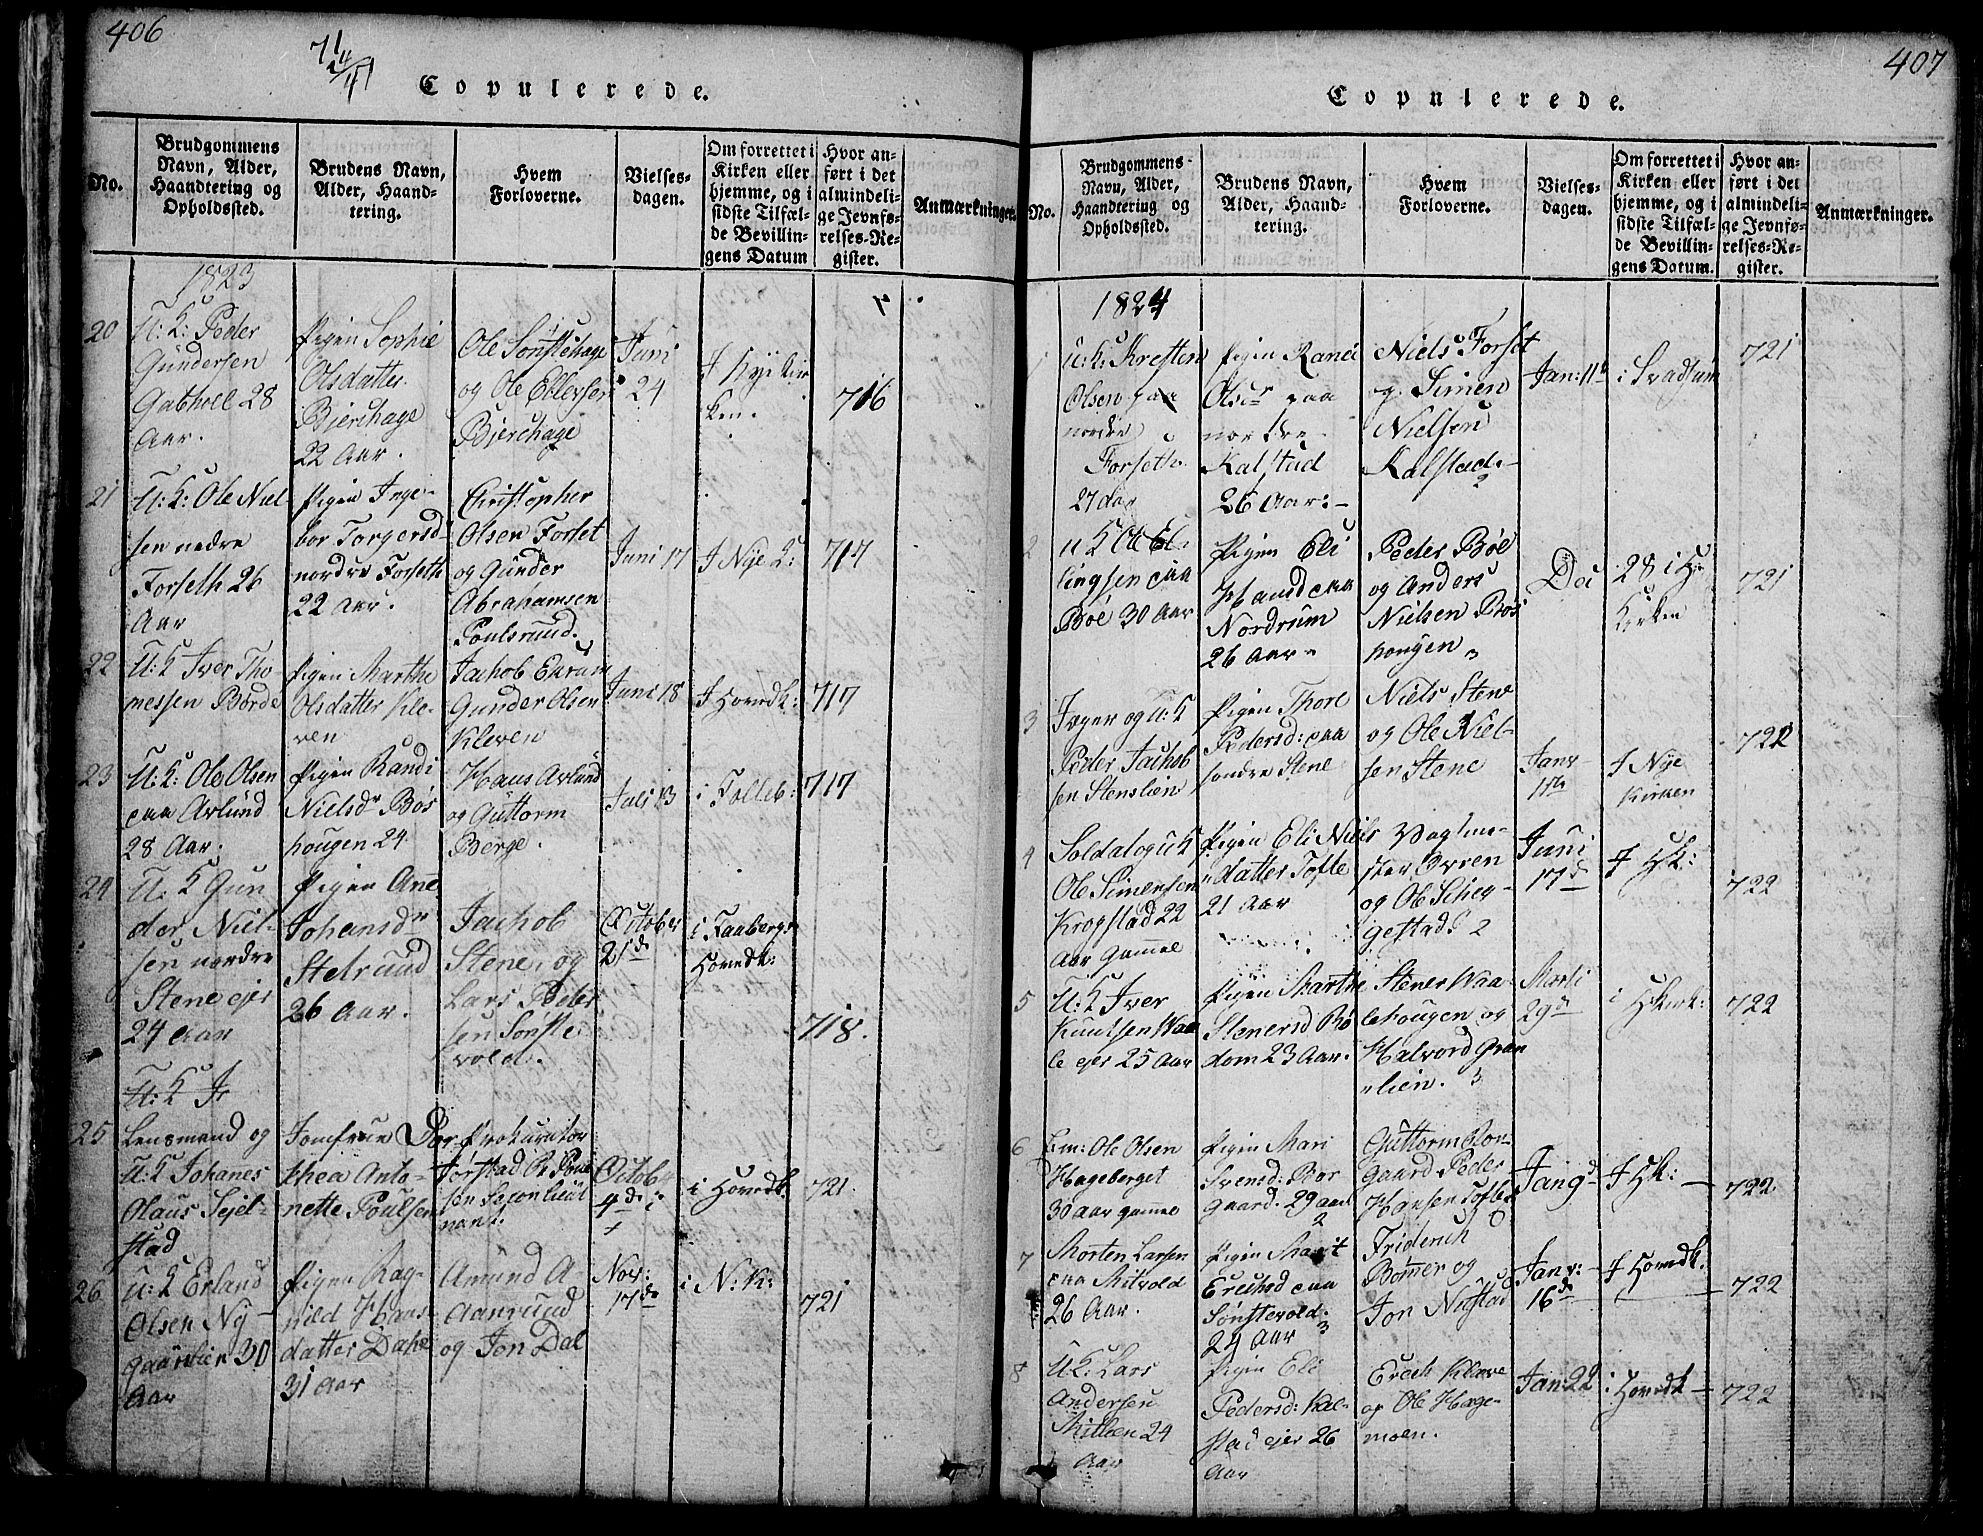 406
Copulerede.
No.
Brudgommens
Navn, Alder,
Haandtering og
Opholdssted.
Brudens Navn,
Alder, Haand-
tering.
Hvem
Forloverne.
Vielses-
dagen.
Om forrettet i
Kirken eller
hjemme, og i
sidste Tilfæl-
de Bevillin-
gens Datum
Hvor an-
ført i det
almindeli-
ge Jevnfø-
relses-Re-
gister.
Anmærkninger.
1823
20
U: K: Peder
Gundersen
28
Aar.
Pigen Sophie
Olsdatter
Bierchage
22 Aar.
Ole Sønstehage
og Ole Ellevsen
Bierchage
Juni
24
I Nye Kir
ken.
716
21
U: K: Ole Niel
sen nedre
Forseth 26
Aar
Pigen Inge-
bor Torgersd
nordre Forseth
22 Aar.
Christopher
Olsen Forset
og Gunder
Abrahamsen
Poulsrund.
Juni 17
I Nye K:
717
22
U: K Iver Tho
messen Børde
Pigen Marthe
Olsdatter Kle-
ven
Jachob
Gunder Olsen
Kleven
Juni 18
I Hovedk:
717
23
U: K: Ole Olsen
paa Avlund
28 Aar.
Pigen Randi
Nielsdr Bøs
hougen 24
Hans Avlund
og Guttorm
Berge.
Juli 13
i Folleb:
717
24
U: K Gun
der Niel-
sen nordre
Stene ejer
24 Aar
Pigen Ane
Johansdr
Stelsrund
26 Aar.
Jachob
Stene, og
Lars Peder
sen Sønste
vold.
October
21de
i Faabergs
Hovedk:
718.
U: K Jr
25
Lensmand og
U: K Johanes
Olaus Sejel-
stad
Jomfrue Dor
thea Anto-
nette Poulsen
Prokurator
Jørstad
nant.
Octob
4de
i Hovedk:
721
26
U: K Erland
Olsen Ny-
gaardlien 30
Aar
Pigen Rag-
nild Hans
datter Dahl
31 Aar
Amund A
Aanrund
og Jon Dal
Nov:
17de
i N: K:
721
407
Copulerede.
No.
Brudgommens
Navn, Alder,
Haandtering og
Opholdssted.
Brudens Navn,
Alder, Haand-
tering.
Hvem
Forloverne.
Vielses-
dagen.
Om forrettet i
Kirken eller
hjemme, og i
sidste Tilfæl-
de Bevillin-
gens Datum.
Hvor an-
ført i det
almindeli-
ge Jevnfø-
relses-Re-
gister.
Anmærkninger.
1824
1
U: K: Kresten
Olsen paa
nordre
Forseth
27 Aar
Pigen Ranei
Olsdr paa
nordre
Kalstad
26 Aar:-
Niels Forset
og Simen
Nielsen
Kalstad.-
Jan: 11te
i Svadsum
721
2
U K Ole El
lingsen paa
Bøe 30 Aar
Pigen Eli
Hansd paa
Nordrum
26 Aar
Peder Bøe
og Anders
Nielsen Bøs
hougen
Do
28 i H
Kirken
721
3
og U: K
Peder Jachob
sen Stenslien
Pigen Thore
Pedersd: paa
søndre Stene
Niels Stene
og Ole Niel-
sen Stene
Janr
I Nye
Kirken
722
4
Soldat og U K
Ole Simensen
Krogstad 22
Aar gammel
Pigen Eli Niels
datter Tofte
21 Aar
Vagtme-
ster Ovren
og Ole Skeg-
gestad
Juni
17de
I H K:
722
5
U: K Iver
Knutsen Waa
le ejer 25 Aar
Pigen Marthe
Stenersd Bø
dom 23 Aar.
Stener Waa-
lehougen og
Halvord Gran
lien.
Marti
29de
i H.kirk:
722
6
Em: Ole Olsen
Hageberget
30 Aar gamme
Pigen Mari
Svensd: Bor
gaard. 29 Aar
Guttorm Bor-
gaard Peder
Hansen Tofte
Jan 9de
I HK:
722
7
Morten Larsen
paa Mitvold
26 Aar.
Pigen Marit
Erichsd paa
Sønstevold.
24 Aar
Friderich
Bømer og
Jon Nustad
Janr:
16de
I Hovedk
722
8
U: K: Lars
Andersen
24
Aar
Pigen Eli
Pedersd: Kal-
stad ejer 26
Aar
Erich Kleve
og Ole Hage-
moen.
Jan: 22
i Hovedk
722